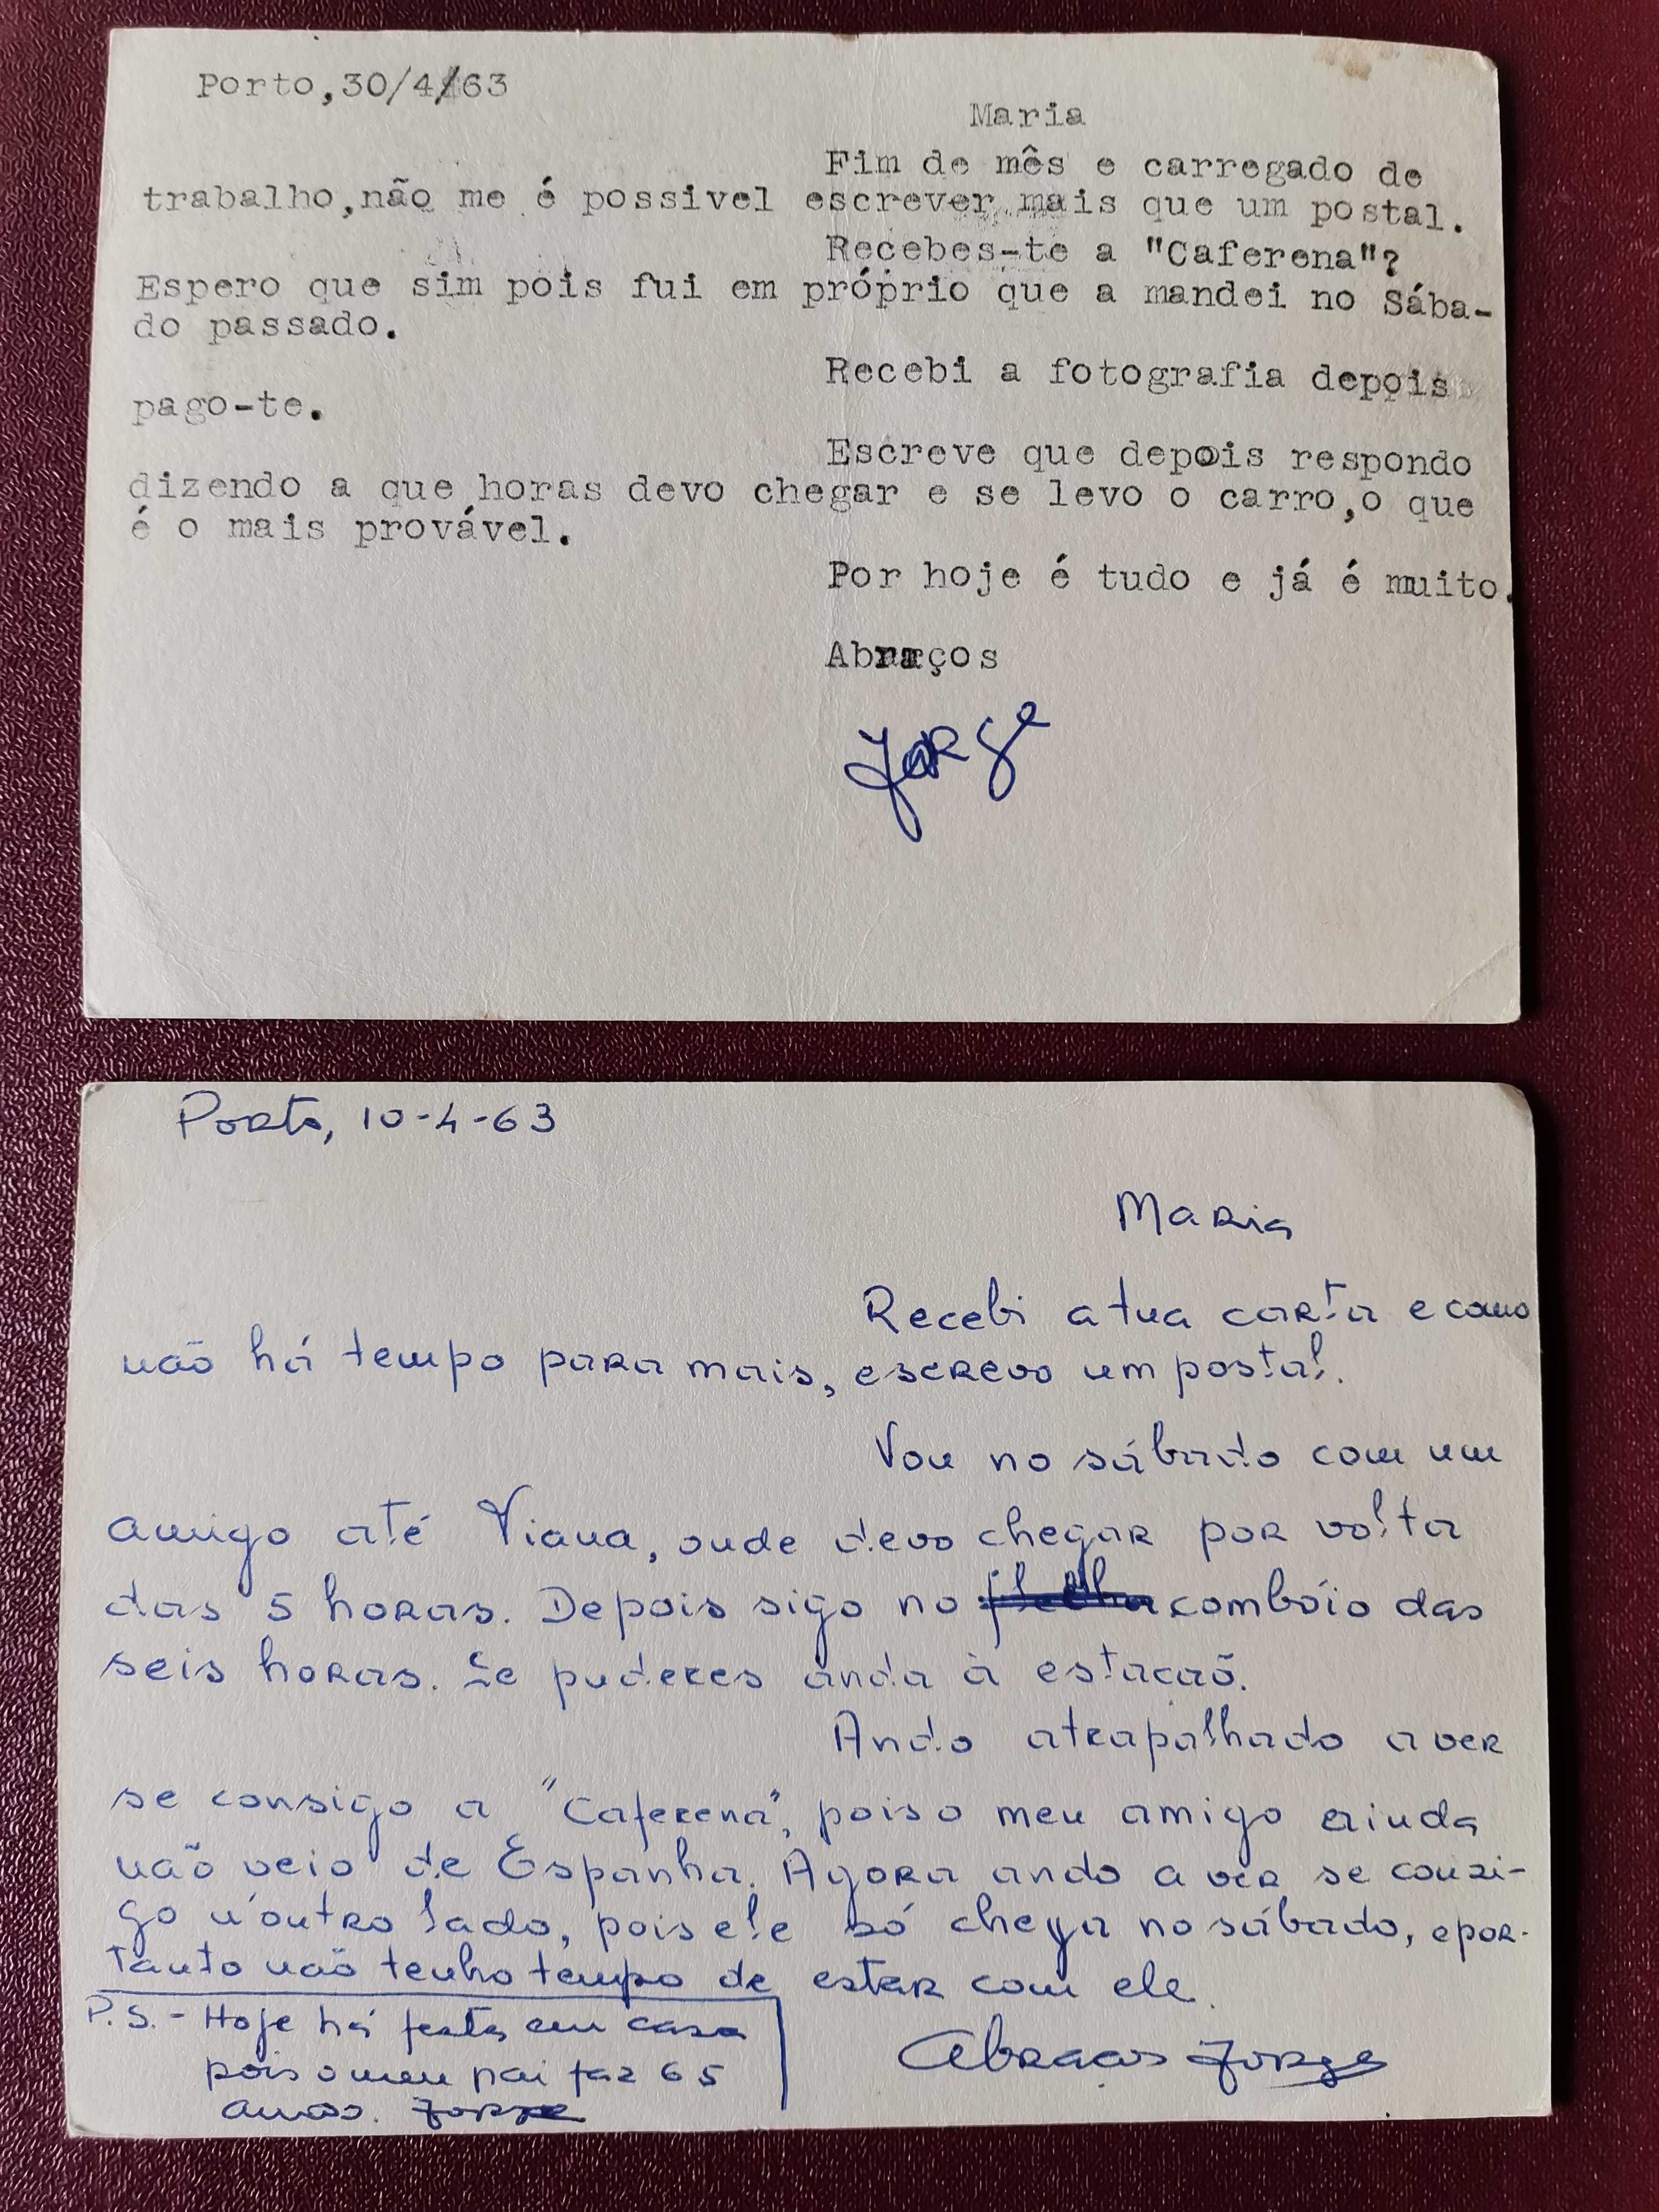 Porto,30/4/63
Maria
Fim de mês e carregado de
trabalho,não me é possivel escrever mais que um postal.
Recebes-te a "Caferena"?
Espero que sim pois fui em próprio que a mandei no Sába-
do passado.
Recebi a fotografia depois
pago-te.
Escreve que depois respondo
dizendo a que horas devo chegar e se levo o carro,o que
é o mais provável.
Por hoje é tudo e já é muito.
Abraços
Jorge
Porto, 10-4-63
Maria
Recebi a tua carta e como
não há tempo para mais, escrevo um postal.
Vou no sábado com um
amigo até Viana, onde devo chegar por volta
das 5 horas. Depois sigo no combóio das
seis horas. Se puderes anda à estação.
Ando atrapalhado a ver
se consigo a "Caferena", pois o meu amigo ainda
não veio de Espanha. Agora ando a ver se consi-
go n'outro lado, pois ele só chega no sábado, e por-
tanto não tenho tempo de estar com ele.
P.S. - Hoje há festa em casa
pois o meu pai faz 65
anos. Jorge
Abraços Jorge